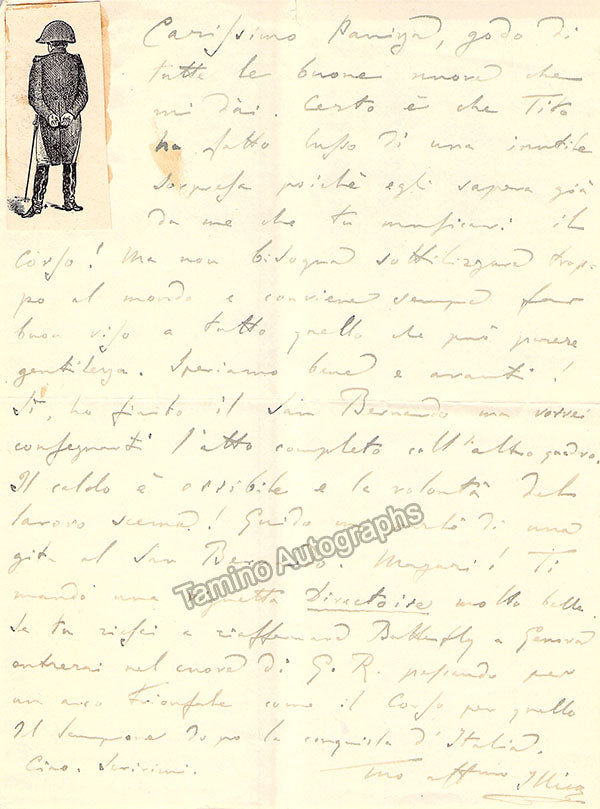 Carissimo Panizza, godo di
tutte le buone nuove che
mi dài. Certo è che Tito
ha fatto lusso di una inutile
sorpresa poichè egli sapeva già
da me che tu musicavi il
Corso! Ma non bisogna sottilizzare trop-
po al mondo e conviene sempre far
buon viso a tutto quello che può parere
gentilezza. Speriamo bene e avanti!
Sì, ho finito il San Bernardo ma vorrei
consegnarti l'atto completo coll'altro quadro.
Il caldo è orribile e la volontà del
lavoro scema! Guido di una
gita al San Magari! Ti
mando una vignetta Directoire molto bella.
Se tu riesci a riaffermare Butterfly a Genova
entrerai nel cuore di G. R. passando per
un arco trionfale come il Corso per quello
Il Sempione dopo la conquista d'Italia.
Ciao. Scrivimi.
Tuo affmo Illica
Tamino Autographs